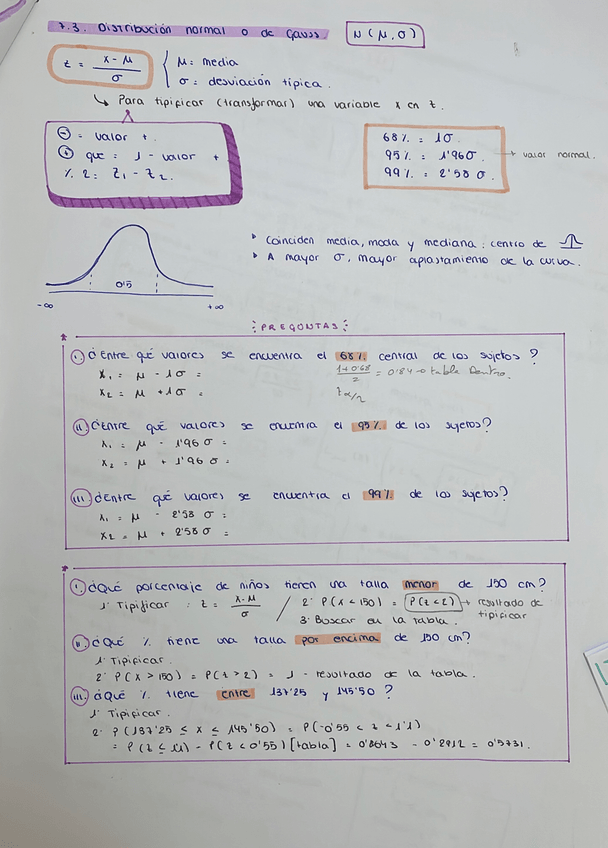 7.3. Distribución normal o de Gauss N(μ,σ)
z = x-μ / σ
μ = media
σ = desviación típica.
↳ Para tipificar (transformar) una variable x en z.
⊖ = valor t.
⊕ que = 1 - valor t
% 2 = z₁ - z₂.
68% = 1σ
95% = 1'96σ.
99% = 2'58 σ.
→ valor normal.
▸ Coinciden media, moda y mediana: centro de
▸ A mayor σ, mayor aplastamiento de la curva.
0'5
-∞ +∞
PREGUNTAS:
I. ¿Entre qué valores se encuentra el 68% central de los sujetos?
x₁ = μ - 1σ =
x₂ = μ + 1σ =
1+0.68 / 2 = 0.84 → tabla Dentro.
tα/2
II. ¿Entre qué valores se encuentra el 95% de los sujetos?
x₁ = μ - 1'96 σ =
x₂ = μ + 1'96 σ =
III. ¿Entre qué valores se encuentra el 99% de los sujetos?
x₁ = μ - 2'58 σ =
x₂ = μ + 2'58 σ =
I. ¿Qué porcentaje de niños tienen una talla menor de 150 cm?
1. Tipificar: z = x-μ / σ / 2. P(x<150) = P(z<2) → resultado de tipificar
3. Buscar en la tabla.
II. ¿Qué % tiene una talla por encima de 150 cm?
1. Tipificar.
2. P(x > 150) = P(z > 2) = 1 - resultado de la tabla.
III. ¿Qué % tiene entre 137'25 y 145'50?
1. Tipificar.
2. P(137'25 ≤ x ≤ 145'50) = P(-0'55 < z < 1'1)
= P(z ≤ 1,1) - P(z < 0'55) [tabla] = 0'8643 - 0'2912 = 0'5731.